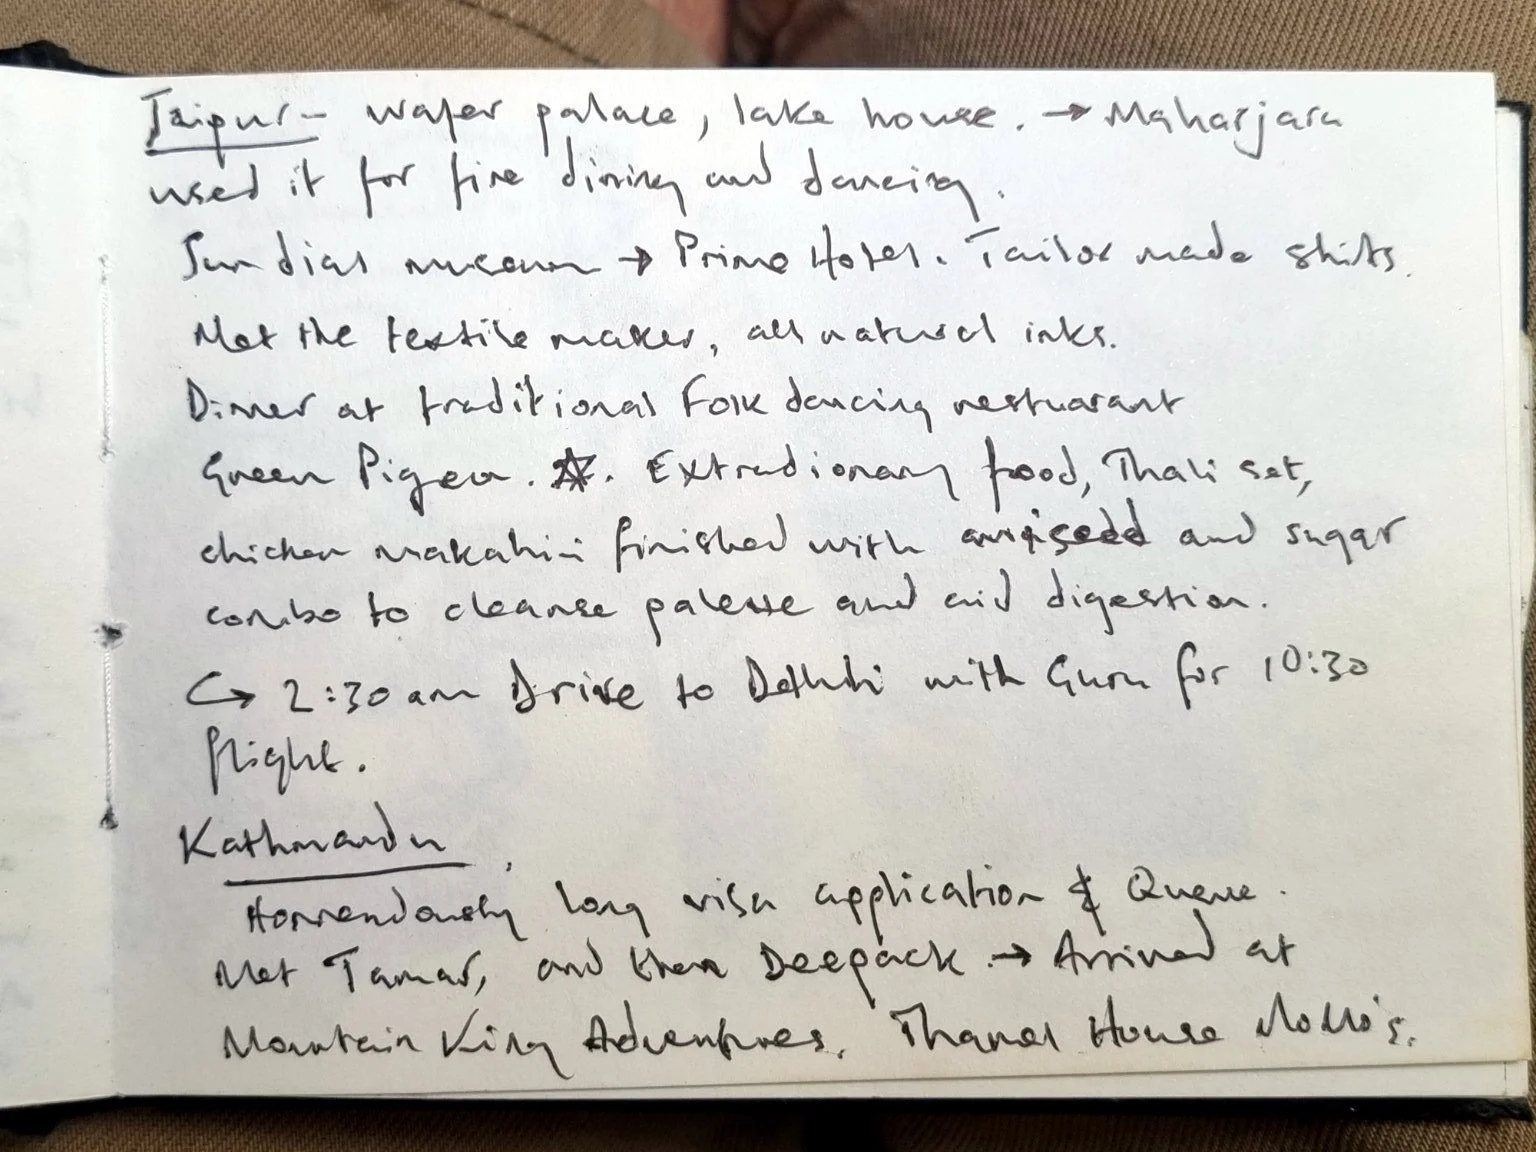 Jaipur - water palace, lake house. → Maharjara
used it for fine dining and dancing.
Sun dial museum → Prime Hotel. Tailor made shits.
Met the textile maker, all natural inks.
Dinner at traditional Folk dancing restuarant
Green Pigeon. ☆. Extradionary food, Thali set,
chicken makahini finished with aniseed and sugar
combo to cleanse palette and aid digestion.
↪ 2:30 am Drive to Delhi with Guru for 10:30
flight.
Kathmandu
Horrendously long visa application & Queue.
Met Tamar, and then Deepack → Arrived at
Mountain King Adventures. Thamel House MoMo's.